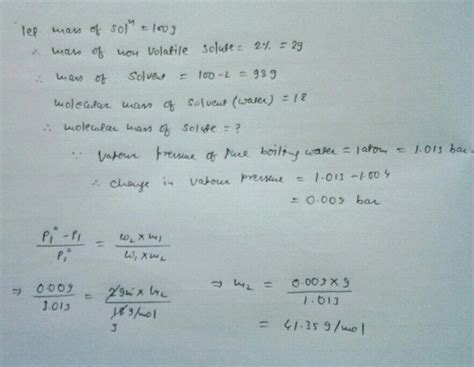 Let mass of solⁿ = 100g
∴ mass of non volatile solute = 2% = 2g
∴ mass of solvent = 100-2 = 98g
molecular mass of solvent (water) = 18
∴ molecular mass of solute = ?
∵ vapour pressure of pure boiling water = 1 atom = 1.013 bar
∴ change in vapour pressure = 1.013 - 1.004
= 0.009 bar
P₁° - P₁ / P₁° = w₂ × m₁ / w₁ × m₂
⇒ 0.009 / 1.013 = ⇒ m₂ = 0.009 × 9 / 1.013
= 41.35 g/mol